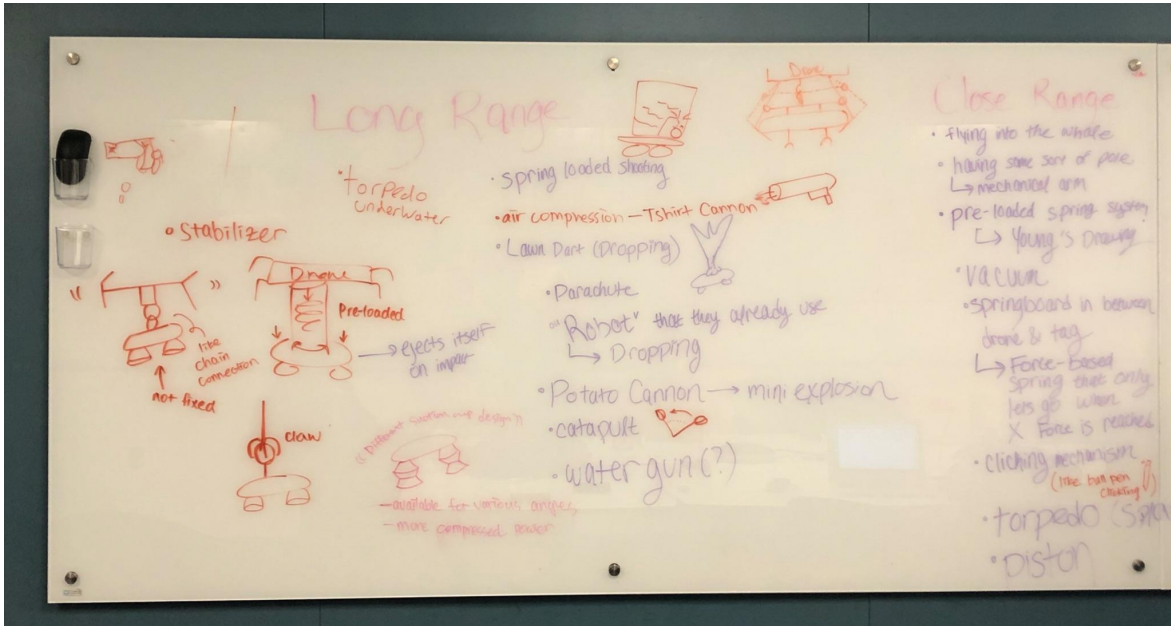 Long Range
• torpedo
underwater
• Stabilizer
" "
like
chain
connection
not fixed
Drone
Pre-loaded
ejects itself
on impact
claw
"Different suction cup design"
- available for various angles,
- more compressed power
• spring loaded shooting
• air compression - Tshirt Cannon
• Lawn Dart (Dropping)
• Parachute
• "Robot" that they already use
↳ Dropping
• Potato Cannon → mini explosion
• catapult
• water gun (?)
Drone
Close Range
• flying into the whale
• having some sort of pole
↳ mechanical arm
• pre-loaded spring system
↳ Young's Drawing
• vacuum
• springboard in between
drone & tag
↳ Force-based
spring that only
lets go when
X Force is reached
• cliching mechanism
(like ball pen
clicking)
• torpedo
• piston